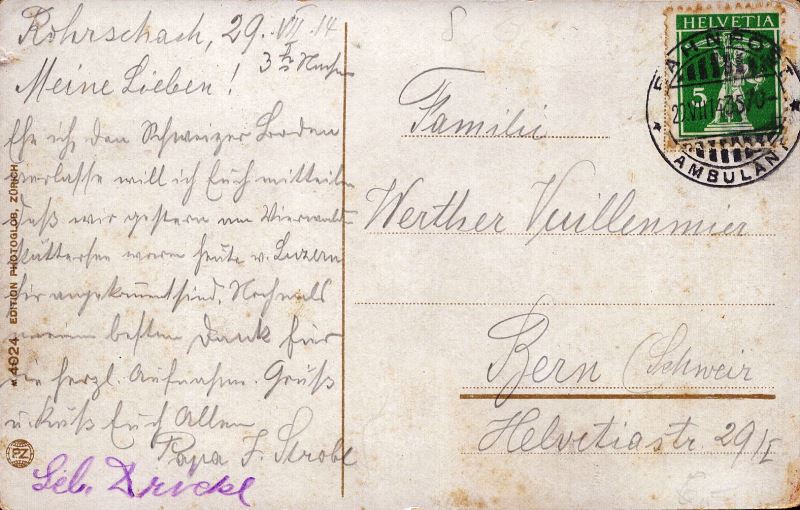 Rohrschach, 29. VII 14
3 1/2 Nachm
Meine Lieben!
Ehe ich den Schweizer Boden
verlasse will ich Euch mitteilen
daß wir gestern am Vierwald-
stättersee waren heute v. Luzern
hir angekommt sind. Nochmals
meinen besten Dank für
die herzl. Aufnahm. Gruß
u. Kuß Euch Allen
Papa F. Strobl
Familie
Werther Vuillenmier
Bern (Schweiz
Helvetiastr. 29/I
HELVETIA
5
BAHNPOST
AMBULANT
4924 EDITION PHOTOGLOB, ZÜRICH
PZ
8